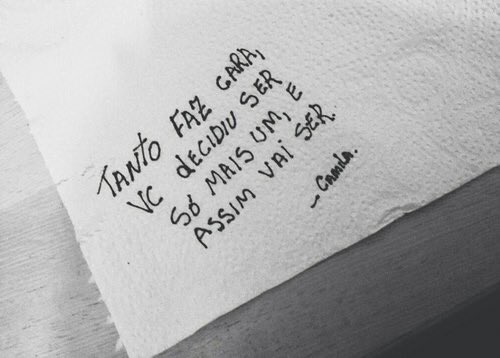 TANTO FAZ CARA,
VC DECIDIU SER
SÓ MAIS UM, E
ASSIM VAI SER.
- Camila.